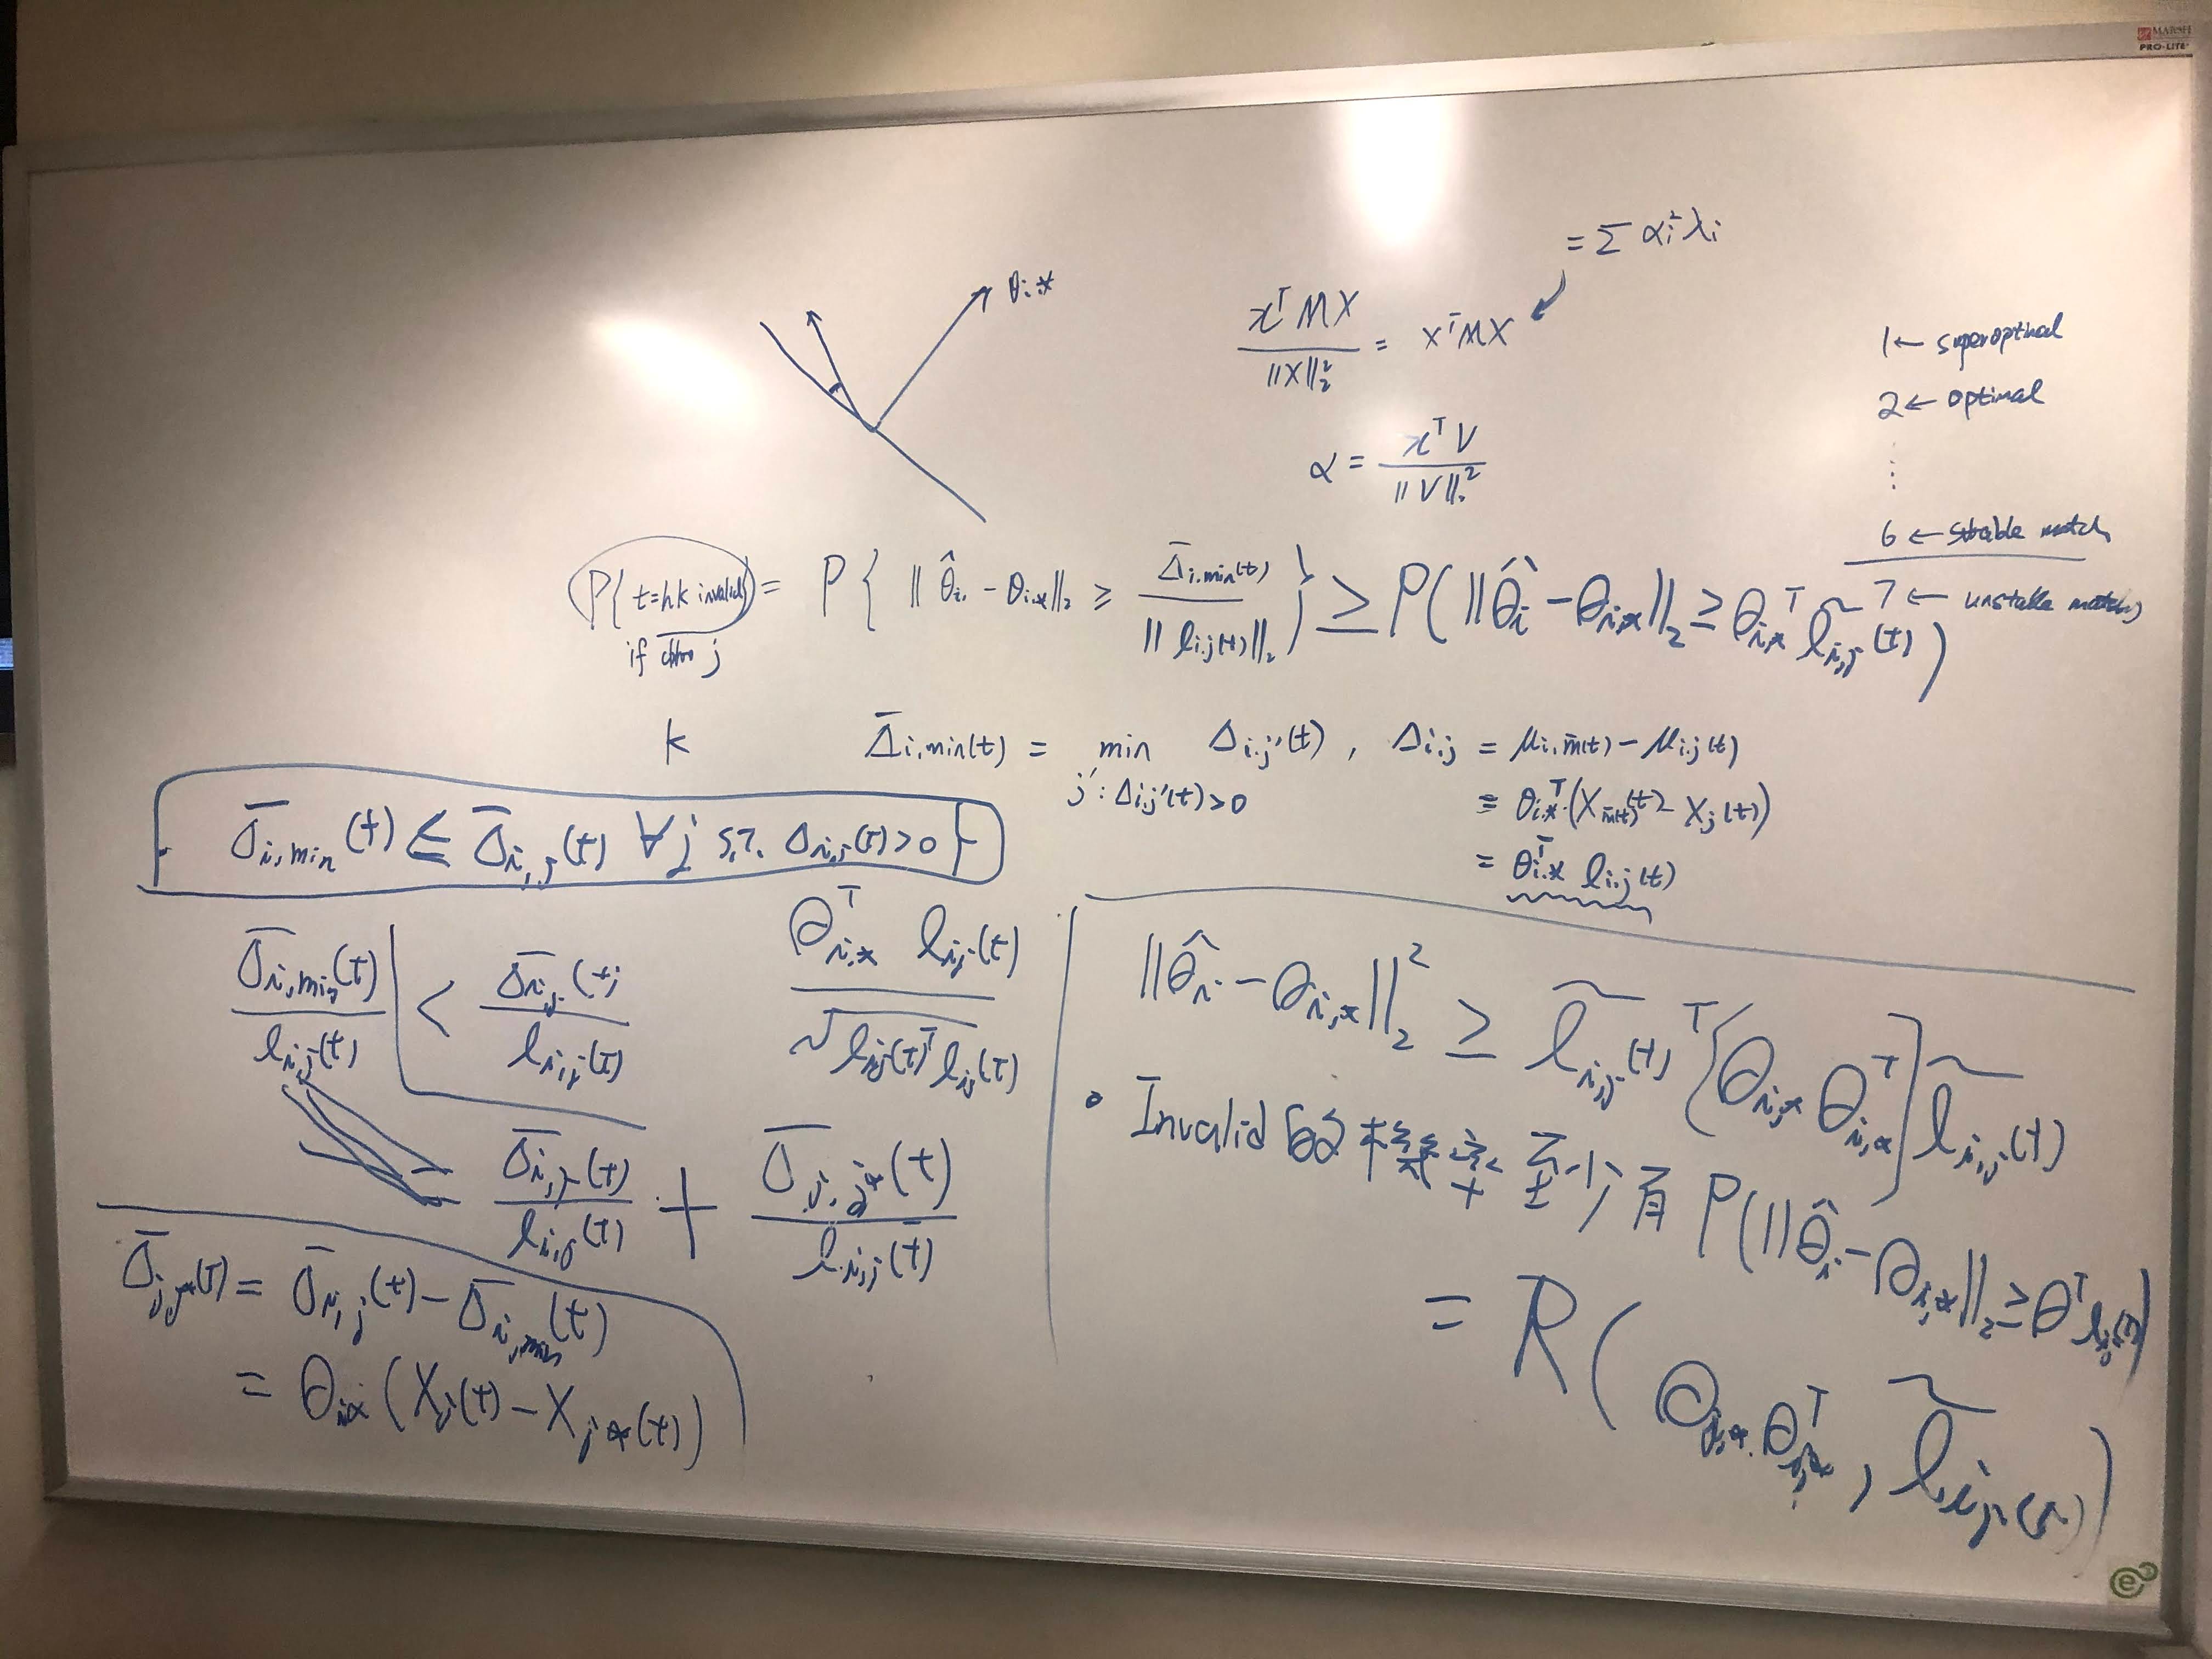 MARSH
PRO-LITE
θi,*
= Σ αi² λi
xᵀMX / ||X||₂² = XᵀMX
α = xᵀV / ||V||₂²
1 ← superoptimal
2 ← optimal
⋮
6 ← stable match
7 ← unstable match
P{ t=hk invalid } = P{ ||θ̂i - θi,*||₂ ≥ Δ̄i,min(t) / ||li,j(t)||₂ } ≥ P( ||θ̂i - θi,*||₂ ≥ θi,*ᵀ l̃i,j(t) )
if j
k
Δ̄i,min(t) = min Δi,j'(t), Δi,j = μi,m̄(t) - μi,j(t)
j' : Δi,j'(t) > 0
= θi,*ᵀ (Xm̄(t)(t) - Xj(t))
= θi,*ᵀ li,j(t)
Δ̄i,min(t) ≤ Δ̄i,j(t) ∀j s.t. Δi,j(t) > 0
Δ̄i,min(t) / li,j(t) < Δ̄i,j(t) / li,j(t)
θi,*ᵀ li,j(t) / √li,j(t)ᵀ li,j(t)
Δ̄i,j(t) / li,j(t) + Δ̄j,j*(t) / li,j(t)
Δ̄j,j*(t) = Δ̄i,j(t) - Δ̄i,min(t)
= θi,* (Xj(t) - Xj*(t))
||θ̂i - θi,*||₂² ≥ l̃i,j(t)ᵀ [θi,* θi,*ᵀ] l̃i,j(t)
• Invalid 的機率至少有 P(||θ̂i - θi,*||₂ ≥ θᵀ li,j(t))
= R( θi,* θi,*ᵀ , l̃i,j(t) )
e